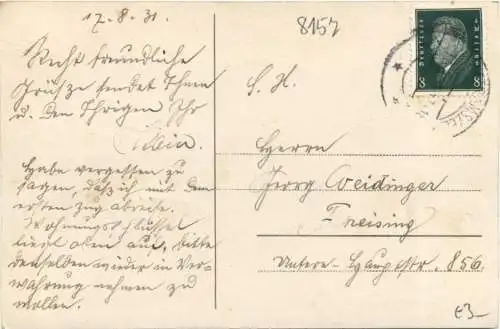 17.8.31.
8157
Recht freundliche
Grüße sendet Ihnen
u. den Ihrigen Ihr
Habe vergessen zu
sagen, daß ich mit dem
ersten Zug abreise.
Wohnungsschlüssel
liegt oben auf, bitte
denselben wieder in Ver-
wahrung nehmen zu
wollen.
Deutsches Reich
8 8
S. H.
Herrn
Georg Weidinger
Freising
Untere-Hauptstr. 856.
€3-